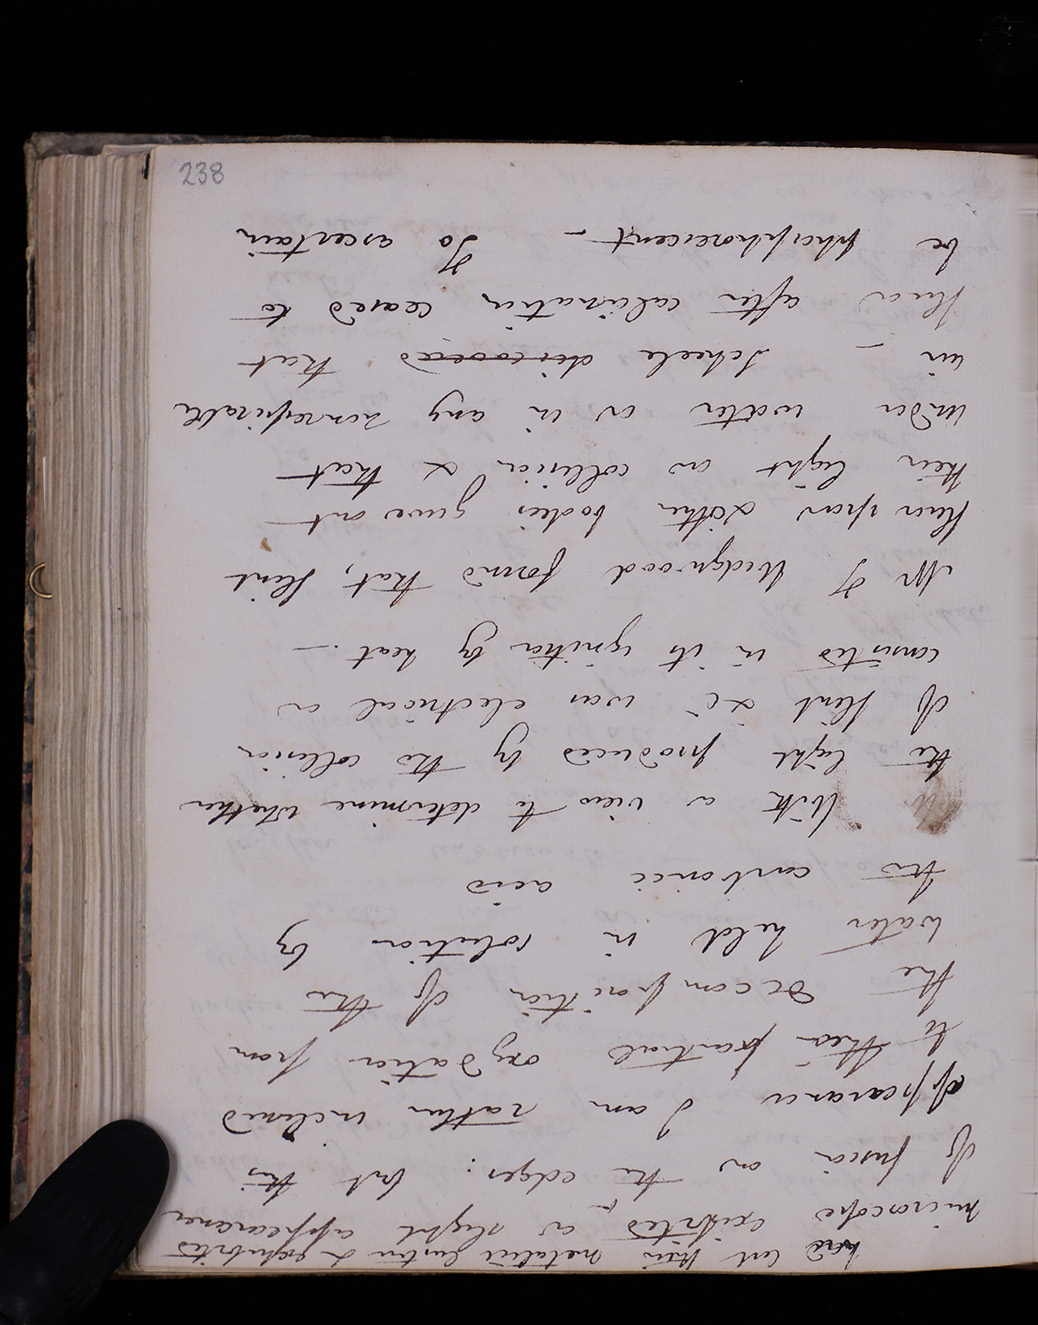 238
had lost their metallic lustre & exhibited
microscope exhibited a slight appearance
of fusion on the edges: but this
appearance I am rather inclined
to their partial oxydation from
the decomposition of the
water held in solution by
the carbonic acid
With a view to determine whether
the light produced by the collision
of flint &c was electrical or
consisted in its ignition by heat. —
Mr T Wedgwood found that, flint
fluor spar & other bodies gave out
their light on collision & that
under water or in any nonrespirable
air — Scheele discovered that
fluor after calcination ceased to
be phosphorescent — To ascertain